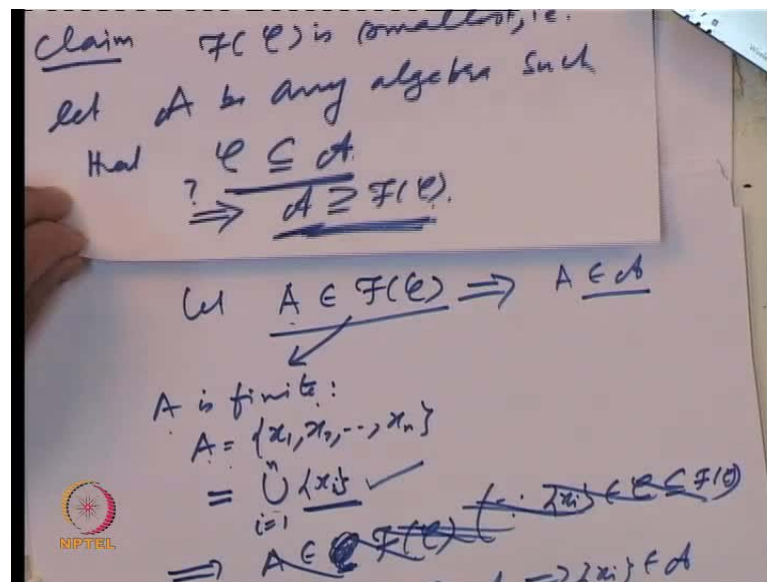 Claim F(C) is smallest, i.e.
let A be any algebra such
that C ⊆ A
? ⟹ A ⊇ F(C).
Let A ∈ F(C) ⟹ A ∈ A
A is finite:
A = {x1, x2, --, xn}
= ⋃ {xi} ✓
n
i=1
⟹ A ∈ F(C) (∵ {xi} ∈ C ⊆ F(C)
⟹ {xi} ∈ A
NPTEL